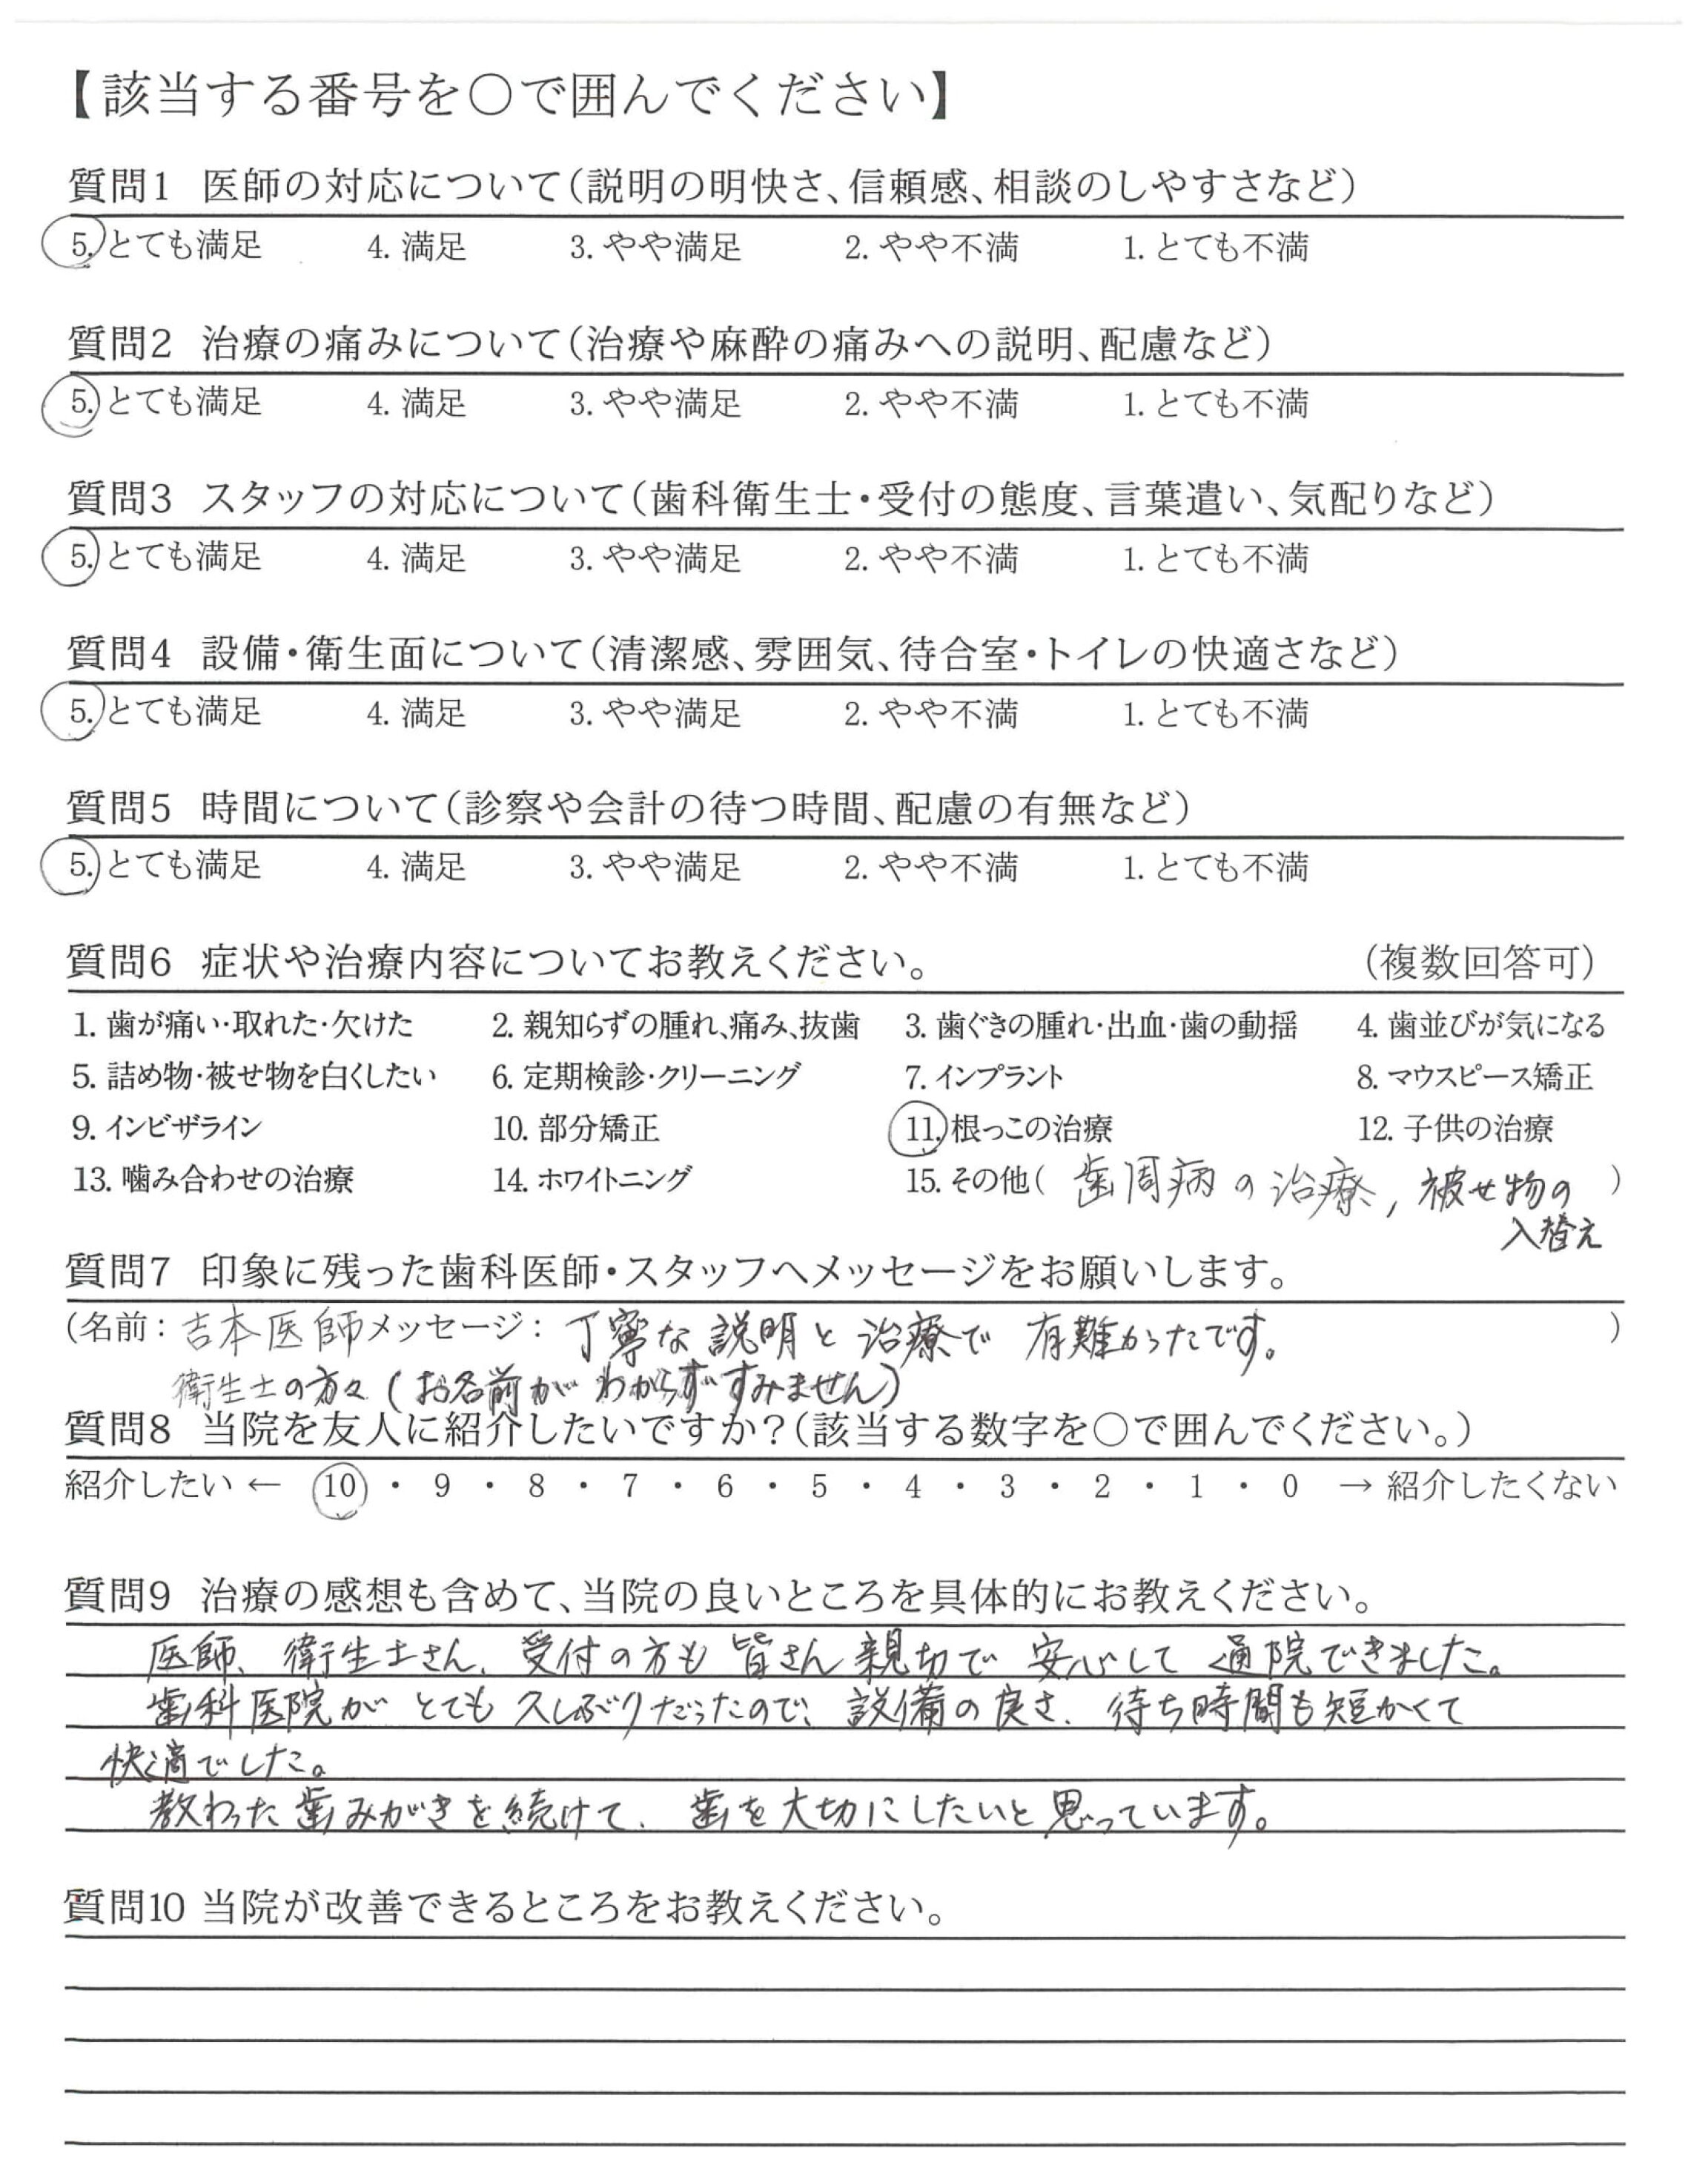 【該当する番号を○で囲んでください】
質問1 医師の対応について(説明の明快さ、信頼感、相談のしやすさなど)
5. とても満足 4. 満足 3. やや満足 2. やや不満 1. とても不満
質問2 治療の痛みについて(治療や麻酔の痛みへの説明、配慮など)
5. とても満足 4. 満足 3. やや満足 2. やや不満 1. とても不満
質問3 スタッフの対応について(歯科衛生士・受付の態度、言葉遣い、気配りなど)
5. とても満足 4. 満足 3. やや満足 2. やや不満 1. とても不満
質問4 設備・衛生面について(清潔感、雰囲気、待合室・トイレの快適さなど)
5. とても満足 4. 満足 3. やや満足 2. やや不満 1. とても不満
質問5 時間について(診察や会計の待つ時間、配慮の有無など)
5. とても満足 4. 満足 3. やや満足 2. やや不満 1. とても不満
質問6 症状や治療内容についてお教えください。 (複数回答可)
1. 歯が痛い・取れた・欠けた 2. 親知らずの腫れ、痛み、抜歯 3. 歯ぐきの腫れ・出血・歯の動揺 4. 歯並びが気になる
5. 詰め物・被せ物を白くしたい 6. 定期検診・クリーニング 7. インプラント 8. マウスピース矯正
9. インビザライン 10. 部分矯正 11. 根っこの治療 12. 子供の治療
13. 噛み合わせの治療 14. ホワイトニング 15. その他( 歯周病の治療, 被せ物の )
入替え
質問7 印象に残った歯科医師・スタッフへメッセージをお願いします。
(名前: 吉本医師 メッセージ: 丁寧な説明と治療で 有難かったです。 )
衛生士の方々(お名前がわからずすみません)
質問8 当院を友人に紹介したいですか?(該当する数字を○で囲んでください。)
紹介したい ← 10 ・ 9 ・ 8 ・ 7 ・ 6 ・ 5 ・ 4 ・ 3 ・ 2 ・ 1 ・ 0 → 紹介したくない
質問9 治療の感想も含めて、当院の良いところを具体的にお教えください。
医師、衛生士さん、受付の方も皆さん親切で 安心して 通院できました。
歯科医院が とても 久しぶりだったので、設備の良さ、待ち時間も短かくて
快適でした。
教わった歯みがきを続けて、歯を大切にしたいと思っています。
質問10 当院が改善できるところをお教えください。